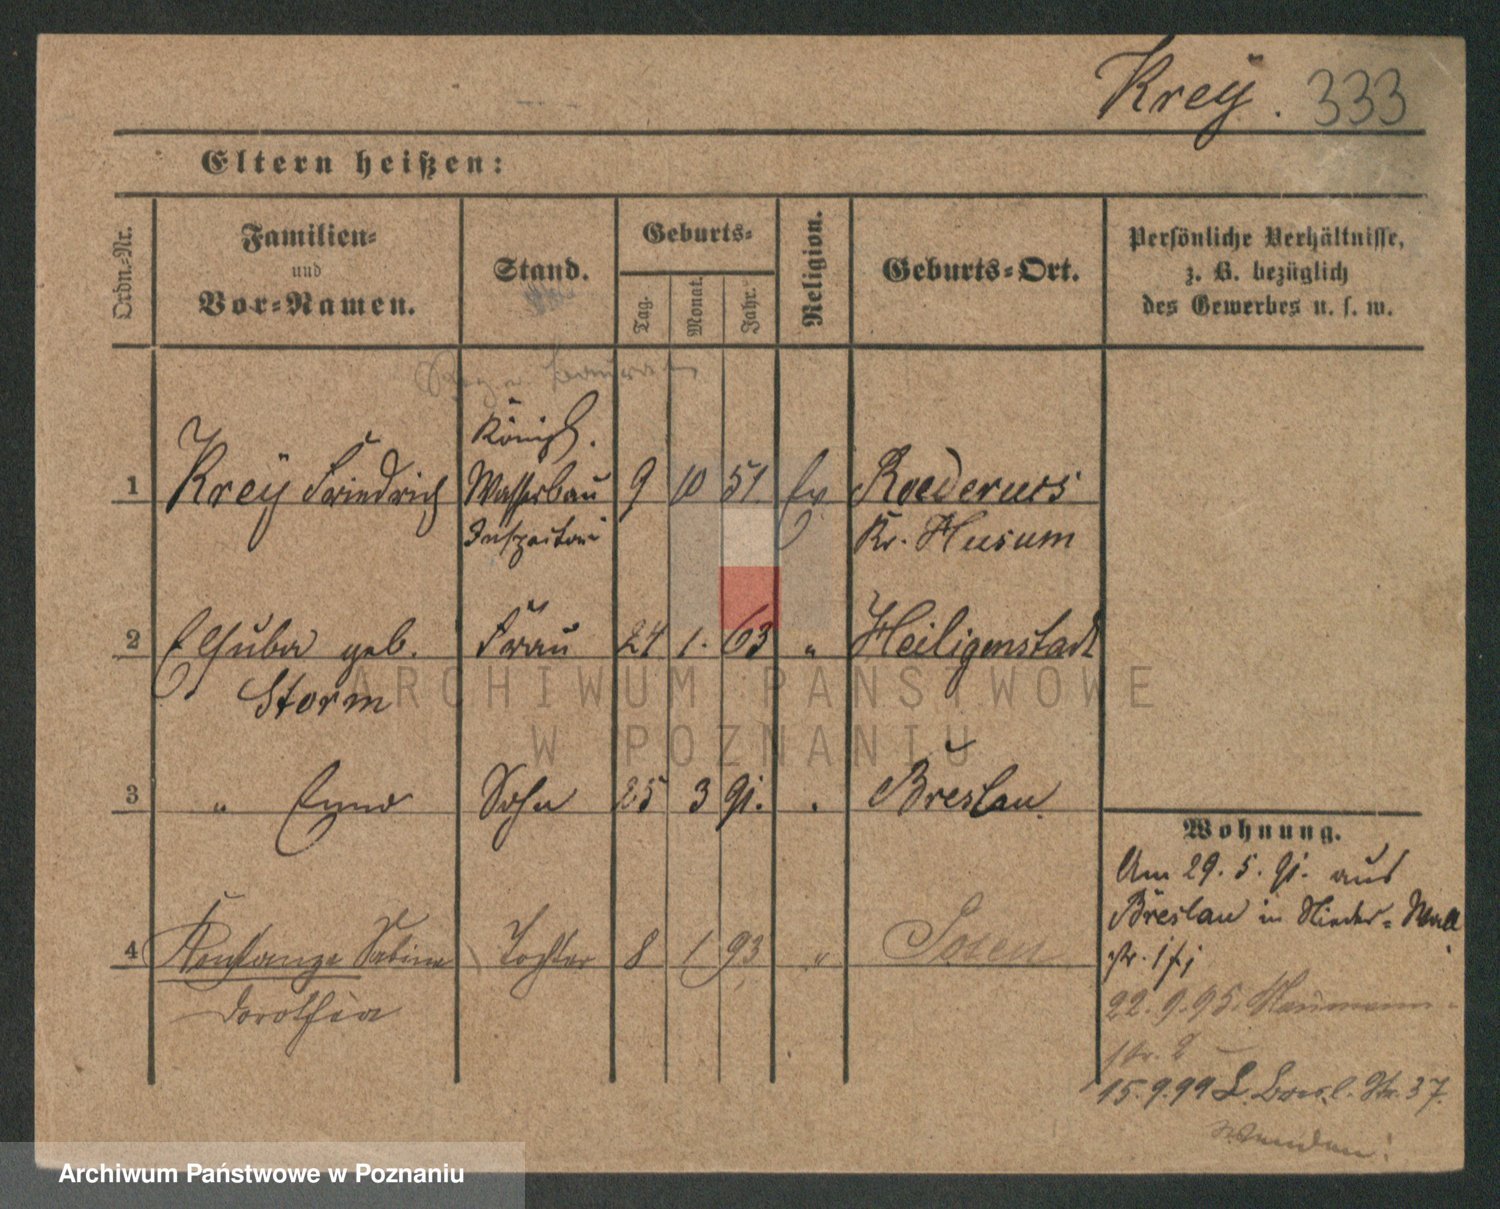 Krey. 333
Eltern heißen:
Ordn.-Nr.
Familien-
und
Vor-Namen.
Stand.
Geburts-
Tag.
Monat.
Jahr.
Religion.
Geburts-Ort.
Persönliche Verhältnisse,
z. B. bezüglich
des Gewerbes u. s. w.
Königl.
1 Krey Friedrich Wasserbau 9 10 51 Ev
Inspector Kr. Husum
2 geb. Frau 24 1. 63 " Heiligenstadt
Storm
3 " Sohn 25 3 91. " Breslau
Wohnung.
Am 29. 5. 91. aus
Breslau in Nieder-Wall
str.
4 Konstanze Sabine Tochter 8 1 93 " Posen
Dorothea
22. 9. 95. Naumann-
str.
15. 9. 99 Str. 37.
Wenden!
ARCHIWUM PAŃSTWOWE
W POZNANIU
Archiwum Państwowe w Poznaniu